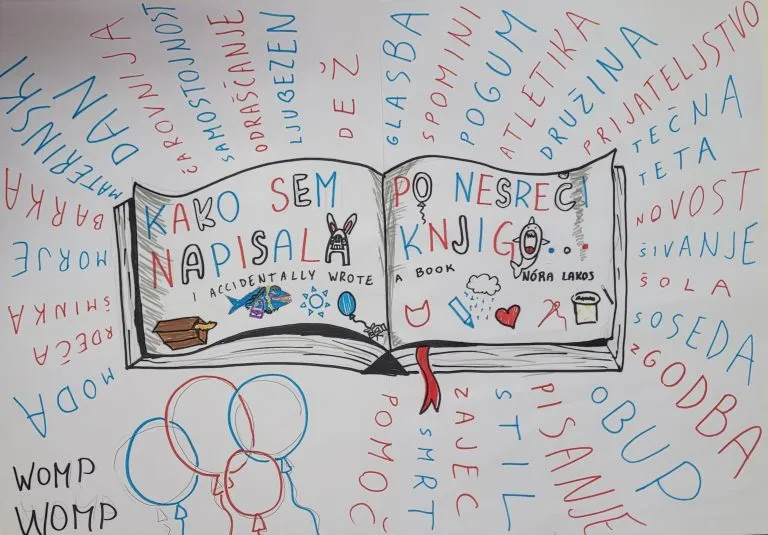 KAKO SEM
NAPISALA
I ACCIDENTALLY WROTE
PO NESREČI
KNJIGO...
A BOOK
NÓRA LAKOS
MODA
RDEČA
ŠMINKA
MORJE
BARKA
MATERINSKI
DAN
ČAROVNIJA
SAMOSTOJNOST
ODRAŠČANJE
LJUBEZEN
DEŽ
GLASBA
SPOMINI
POGUM
ATLETIKA
DRUŽINA
PRIJATELJSTVO
TEČNA
TETA
NOVOST
ŠIVANJE
ŠOLA
SOSEDA
ZGODBA
OBUP
PISANJE
STIL
ZAJEC
SMRT
POMOČ
WOMP
WOMP